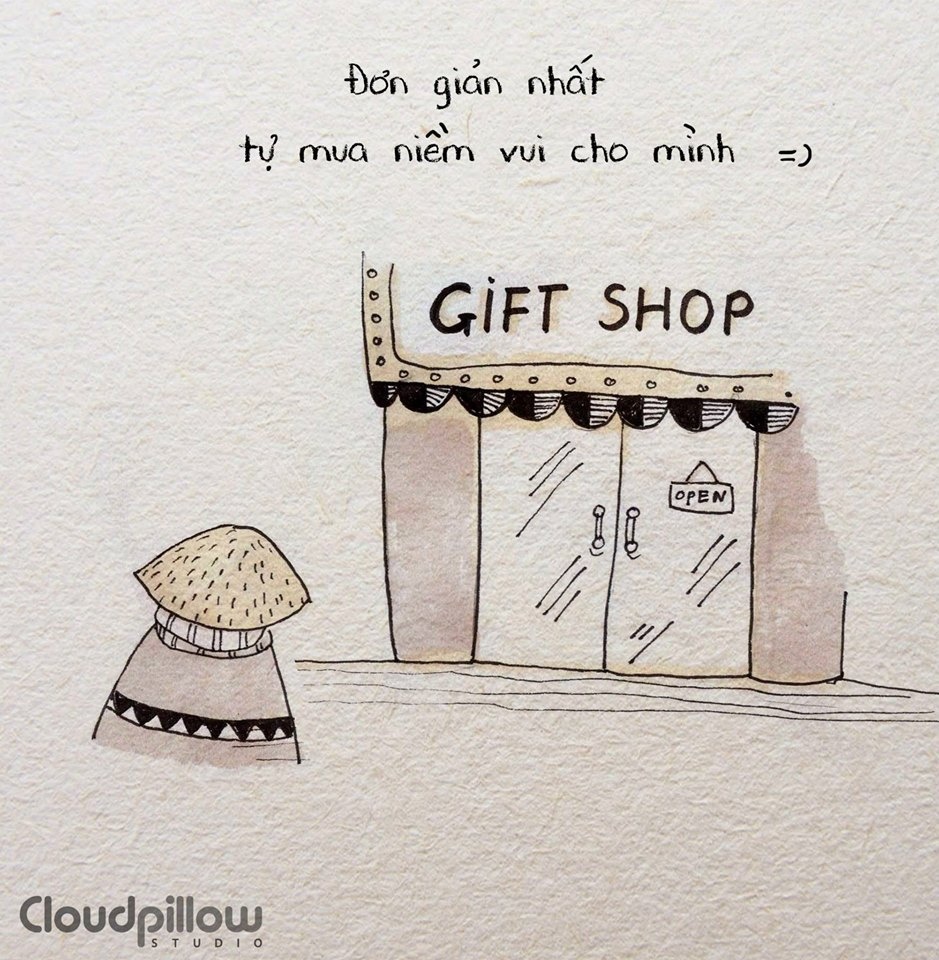 Đơn giản nhất
tự mua niềm vui cho mình =)
GiFT SHOP
OPEN
Cloudpillow
STUDIO